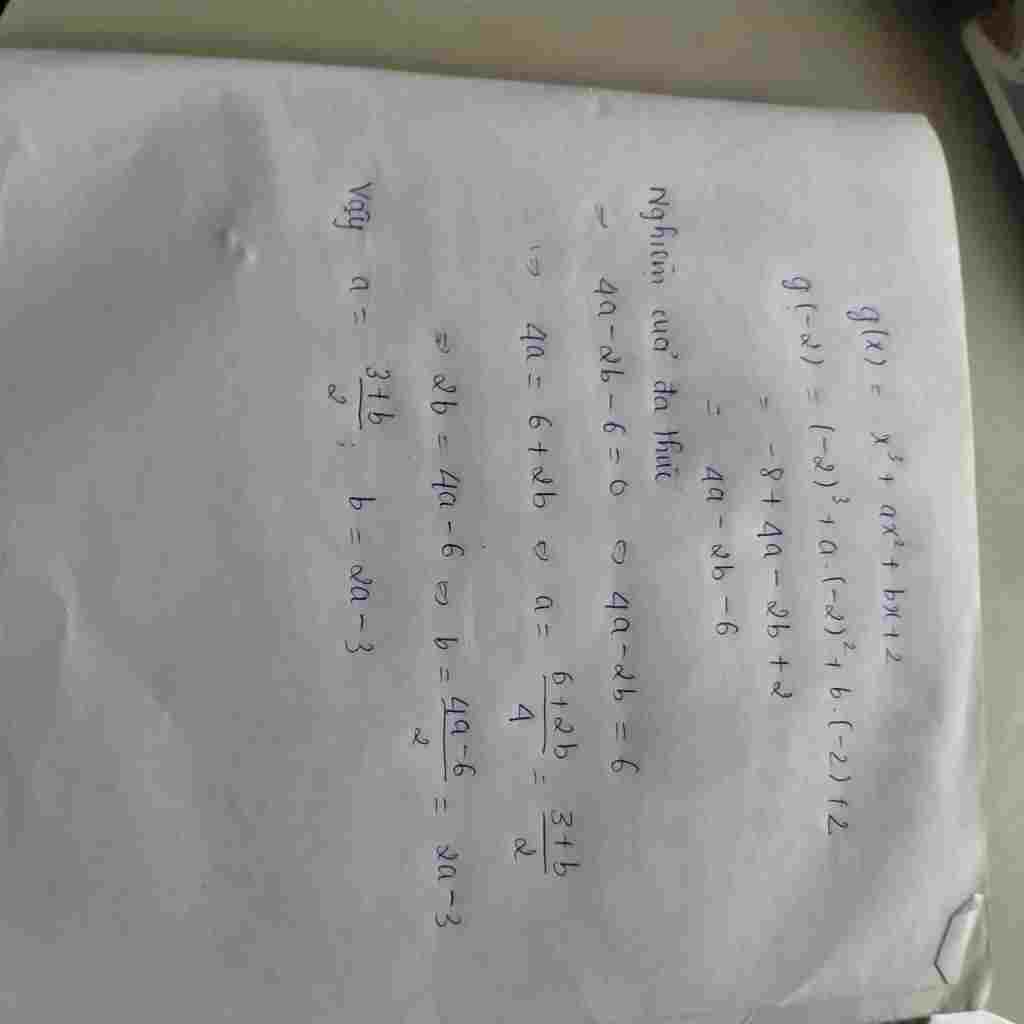 g(x) = x³ + ax² + bx + 2
g(-2) = (-2)³ + a.(-2)² + b.(-2) + 2
= -8 + 4a - 2b + 2
= 4a - 2b - 6
Nghiệm của đa thức
⇒ 4a - 2b - 6 = 0 ⇔ 4a - 2b = 6
⇒ 4a = 6 + 2b ⇔ a = (6+2b)/4 = (3+b)/2
⇒ 2b = 4a - 6 ⇔ b = (4a-6)/2 = 2a - 3
Vậy a = (3+b)/2 ; b = 2a - 3